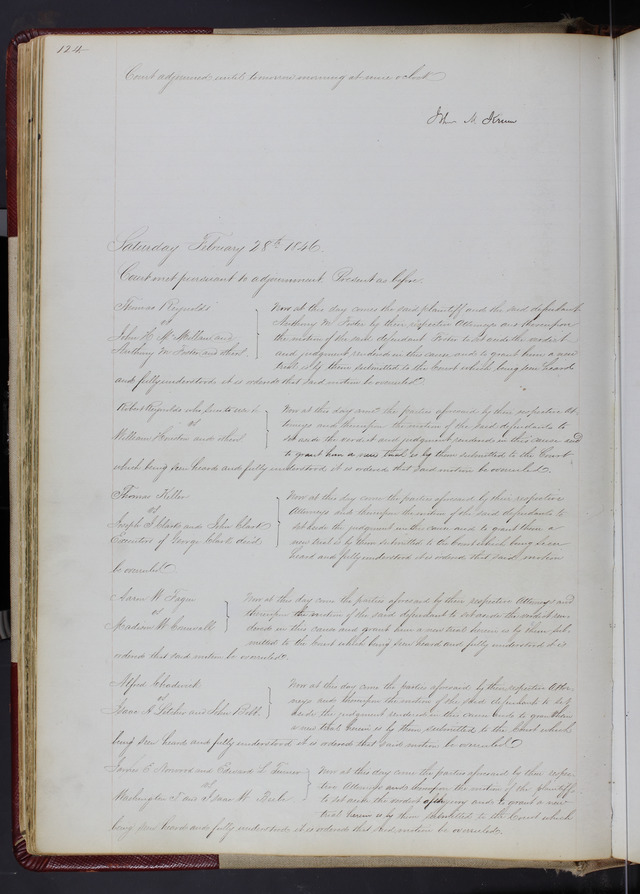 124
Court adjourned until tomorrow morning at nine o'clock
John M. Krum
Saturday February 28th 1846
Court met pursuant to adjournment. Present as before.
Thomas Reynolds
vs
John H. McMillan and
Anthony W. Foster and
Now at this day comes the said plaintiff and the said defendant
Anthony W. Foster by their respective Attorneys and thereupon
the motion of the said defendant Foster to set aside the verdict
and judgment rendered in this cause and to grant him a new
trial is by them submitted to the Court which being seen heard
and fully understood it is ordered that said motion be overruled.
Robert Reynolds who sues to use &c
vs
William and
Now at this day come the parties aforesaid by their respective At-
torneys and thereupon the motion of the said defendants to
set aside the verdict and judgment rendered in this cause and
to grant him a new trial is by them submitted to the Court
which being seen heard and fully understood it is ordered that said motion be overruled.
Thomas Keller
vs
Joseph S. Clark and John Clark
Executors of George Clark decd
Now at this day come the parties aforesaid by their respective
Attorneys and thereupon the motion of the said defendants to
set aside the judgment in this cause and to grant them a
new trial is by them submitted to the Court which being seen
heard and fully understood it is ordered that said motion
be overruled.
Aaron W. Fagin
vs
Madison W.
Now at this day come the parties aforesaid by their respective Attorneys and
thereupon the motion of the said defendant to set aside the verdict ren-
dered in this cause and grant him a new trial herein is by them sub-
mitted to the Court which being seen heard and fully understood it is
ordered that said motion be overruled.
Alfred Chadwick
vs
Isaac A. Letcher and John
Now at this day come the parties aforesaid by their respective Attor-
neys and thereupon the motion of the said defendants to set
aside the judgment rendered in this cause and to grant them
a new trial herein is by them submitted to the Court which
being seen heard and fully understood it is ordered that said motion be overruled.
James E. and Edward L.
vs
Washington T. and Isaac W.
Now at this day come the parties aforesaid by their respec-
tive Attorneys and thereupon the motion of the plaintiffs
to set aside the verdict of the jury and to grant a new
trial herein is by them submitted to the Court which
being seen heard and fully understood it is ordered that said motion be overruled.